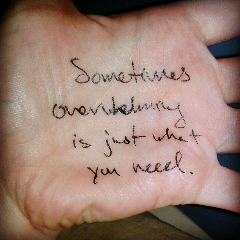 Sometimes
overwhelming
is just what
you need.